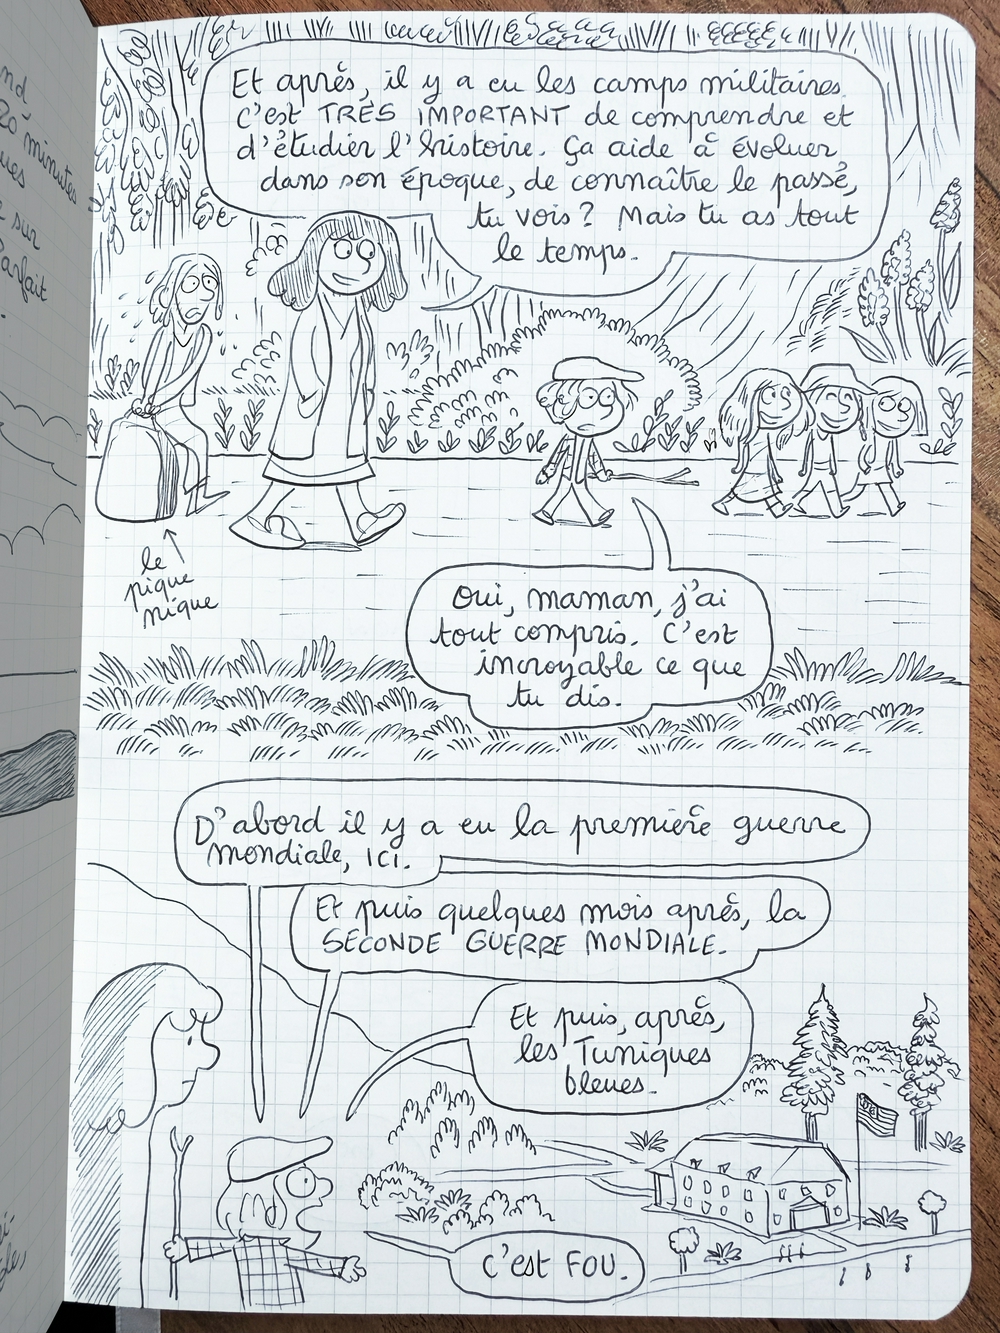 Et après, il y a eu les camps militaires.
C'est TRÈS IMPORTANT de comprendre et
d'étudier l'histoire. Ça aide à évoluer
dans son époque, de connaître le passé,
tu vois ? Mais tu as tout
le temps.
le
pique
nique
Oui, maman, j'ai
tout compris. C'est
incroyable ce que
tu dis.
D'abord il y a eu la première guerre
mondiale, ICI.
Et puis quelques mois après, la
SECONDE GUERRE MONDIALE.
Et puis, après,
les Tuniques
bleues.
C'est FOU.
nd
20 minutes
ues
sur
Parfait